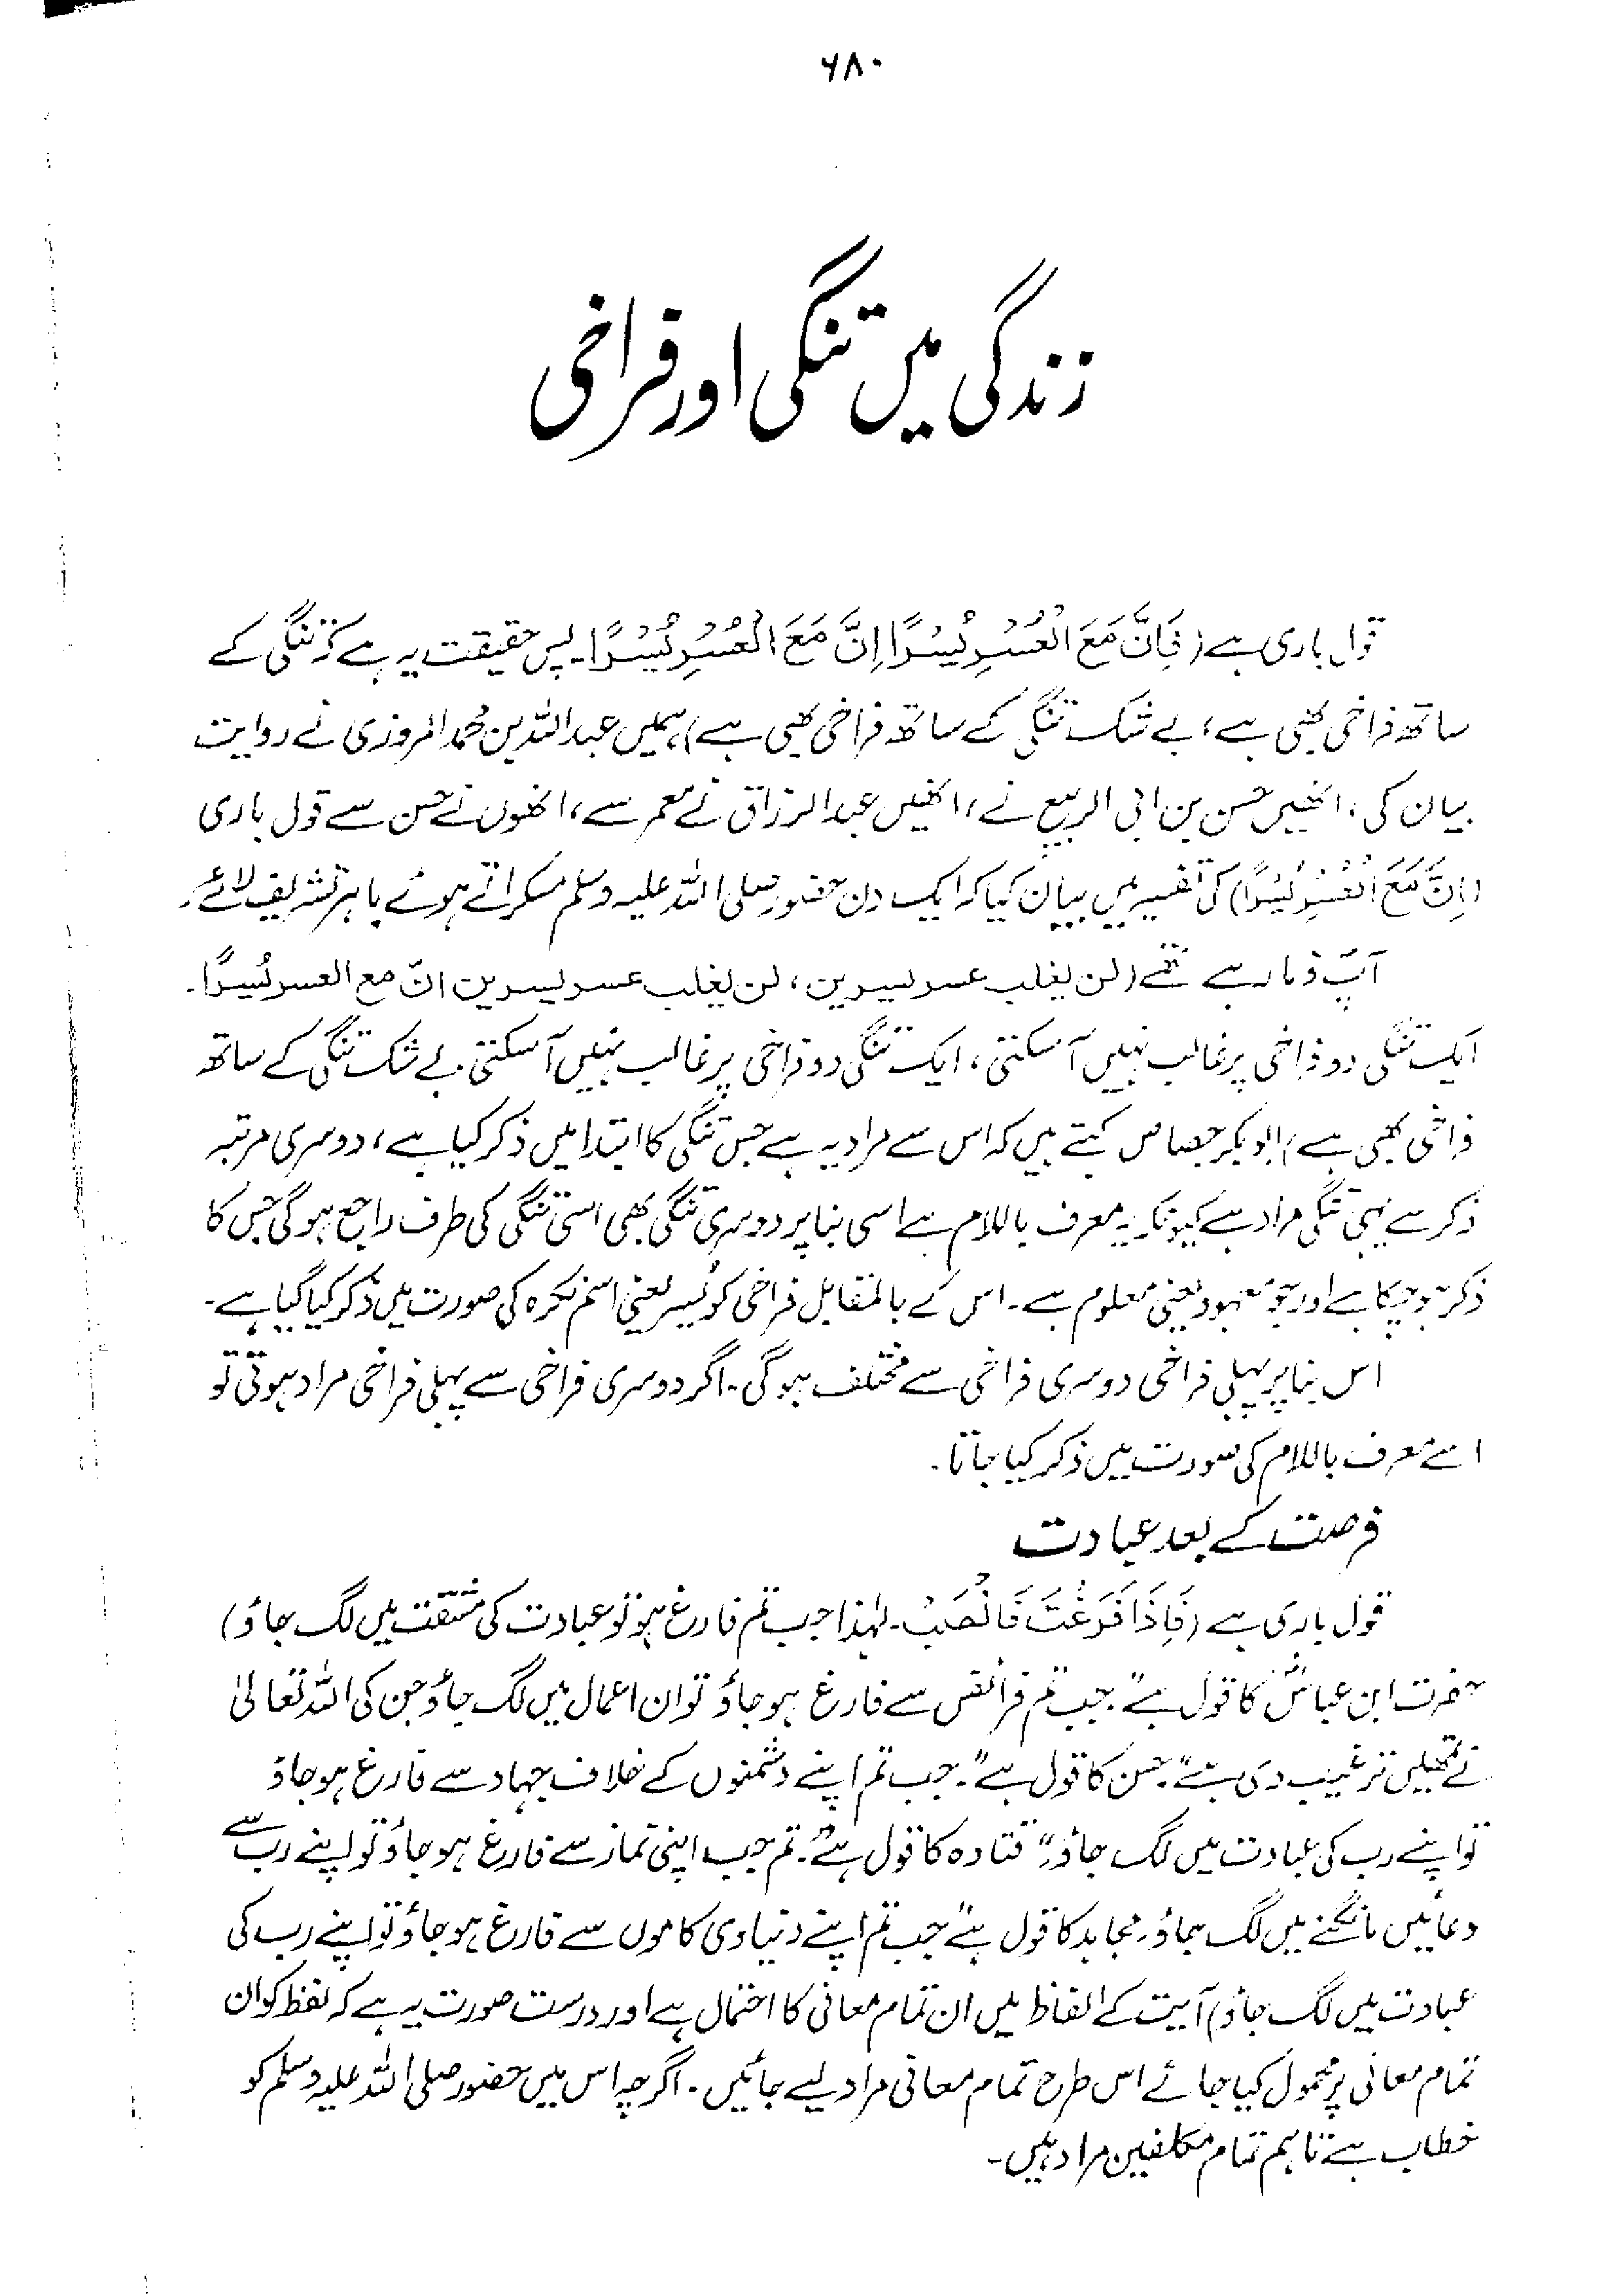 ۶۸۰
زندگی میں تنگی اور فراخی
قول باری ہے (فَاِنَّ مَعَ الْعُسْرِ يُسْرًا اِنَّ مَعَ الْعُسْرِ يُسْرًا۔ پس حقیقت یہ ہے کہ تنگی کے
ساتھ فراخی بھی ہے، بے شک تنگی کے ساتھ فراخی بھی ہے) ہمیں عبداللہ بن محمد المروزی نے روایت
بیان کی، انھیں حسن بن ابی الربیع نے، انھیں عبدالرزاق نے معمر سے، انھوں نے حسن سے قول باری
(اِنَّ مَعَ الْعُسْرِ يُسْرًا) کی تفسیر میں بیان کیا کہ ایک دن حضور صلی اللہ علیہ وسلم مسکراتے ہوئے باہر تشریف لائے،
آپؐ فرما رہے تھے (لن یغلب عسر یسرین، لن یغلب عسر یسرین انّ مع العسر یُسرًا۔
ایک تنگی دو فراخی پر غالب نہیں آسکتی، ایک تنگی دو فراخی پر غالب نہیں آسکتی۔ بے شک تنگی کے ساتھ
فراخی بھی ہے) ابوبکر جصاص کہتے ہیں کہ اس سے مراد یہ ہے جس تنگی کا ابتدا میں ذکر کیا ہے، دوسری مرتبہ
ذکر سے یہی تنگی مراد ہے کیونکہ یہ معرف باللام ہے اسی بنا پر دوسری تنگی بھی اسی تنگی کی طرف راجع ہوگی جس کا
ذکر ہوچکا ہے اور جو معہود یعنی معلوم ہے۔ اس کے بالمقابل فراخی کو یُسر یعنی اسم نکرہ کی صورت میں ذکر کیا گیا ہے۔
اس بنا پر پہلی فراخی دوسری فراخی سے مختلف ہوگی۔ اگر دوسری فراخی سے پہلی فراخی مراد ہوتی تو
اسے معرف باللام کی صورت میں ذکر کیا جاتا۔
فرصت کے بعد عبادت
قول باری ہے (فَاِذَا فَرَغْتَ فَانْصَبْ۔ لہٰذا جب تم فارغ ہو تو عبادت کی مشقت میں لگ جاؤ)
حضرت ابن عباسؓ کا قول ہے "جب تم فرائض سے فارغ ہوجاؤ تو ان اعمال میں لگ جاؤ جن کی اللہ تعالیٰ
نے تمھیں ترغیب دی ہے"۔ حسن کا قول ہے"۔ جب تم اپنے دشمنوں کے خلاف جہاد سے فارغ ہوجاؤ
تو اپنے رب کی عبادت میں لگ جاؤ"۔ قتادہ کا قول ہے"۔ تم جب اپنی نماز سے فارغ ہوجاؤ تو اپنے رب سے
دعائیں مانگنے میں لگ جاؤ۔ مجاہد کا قول ہے" جب تم اپنے دنیاوی کاموں سے فارغ ہوجاؤ تو اپنے رب کی
عبادت میں لگ جاؤ) آیت کے الفاظ میں ان تمام معانی کا احتمال ہے اور درست صورت یہ ہے کہ لفظ کو ان
تمام معانی پر محمول کیا جائے اس طرح تمام معانی مراد لیے جائیں۔ اگرچہ اس میں حضور صلی اللہ علیہ وسلم کو
خطاب ہے تاہم تمام مکلفین مراد ہیں۔